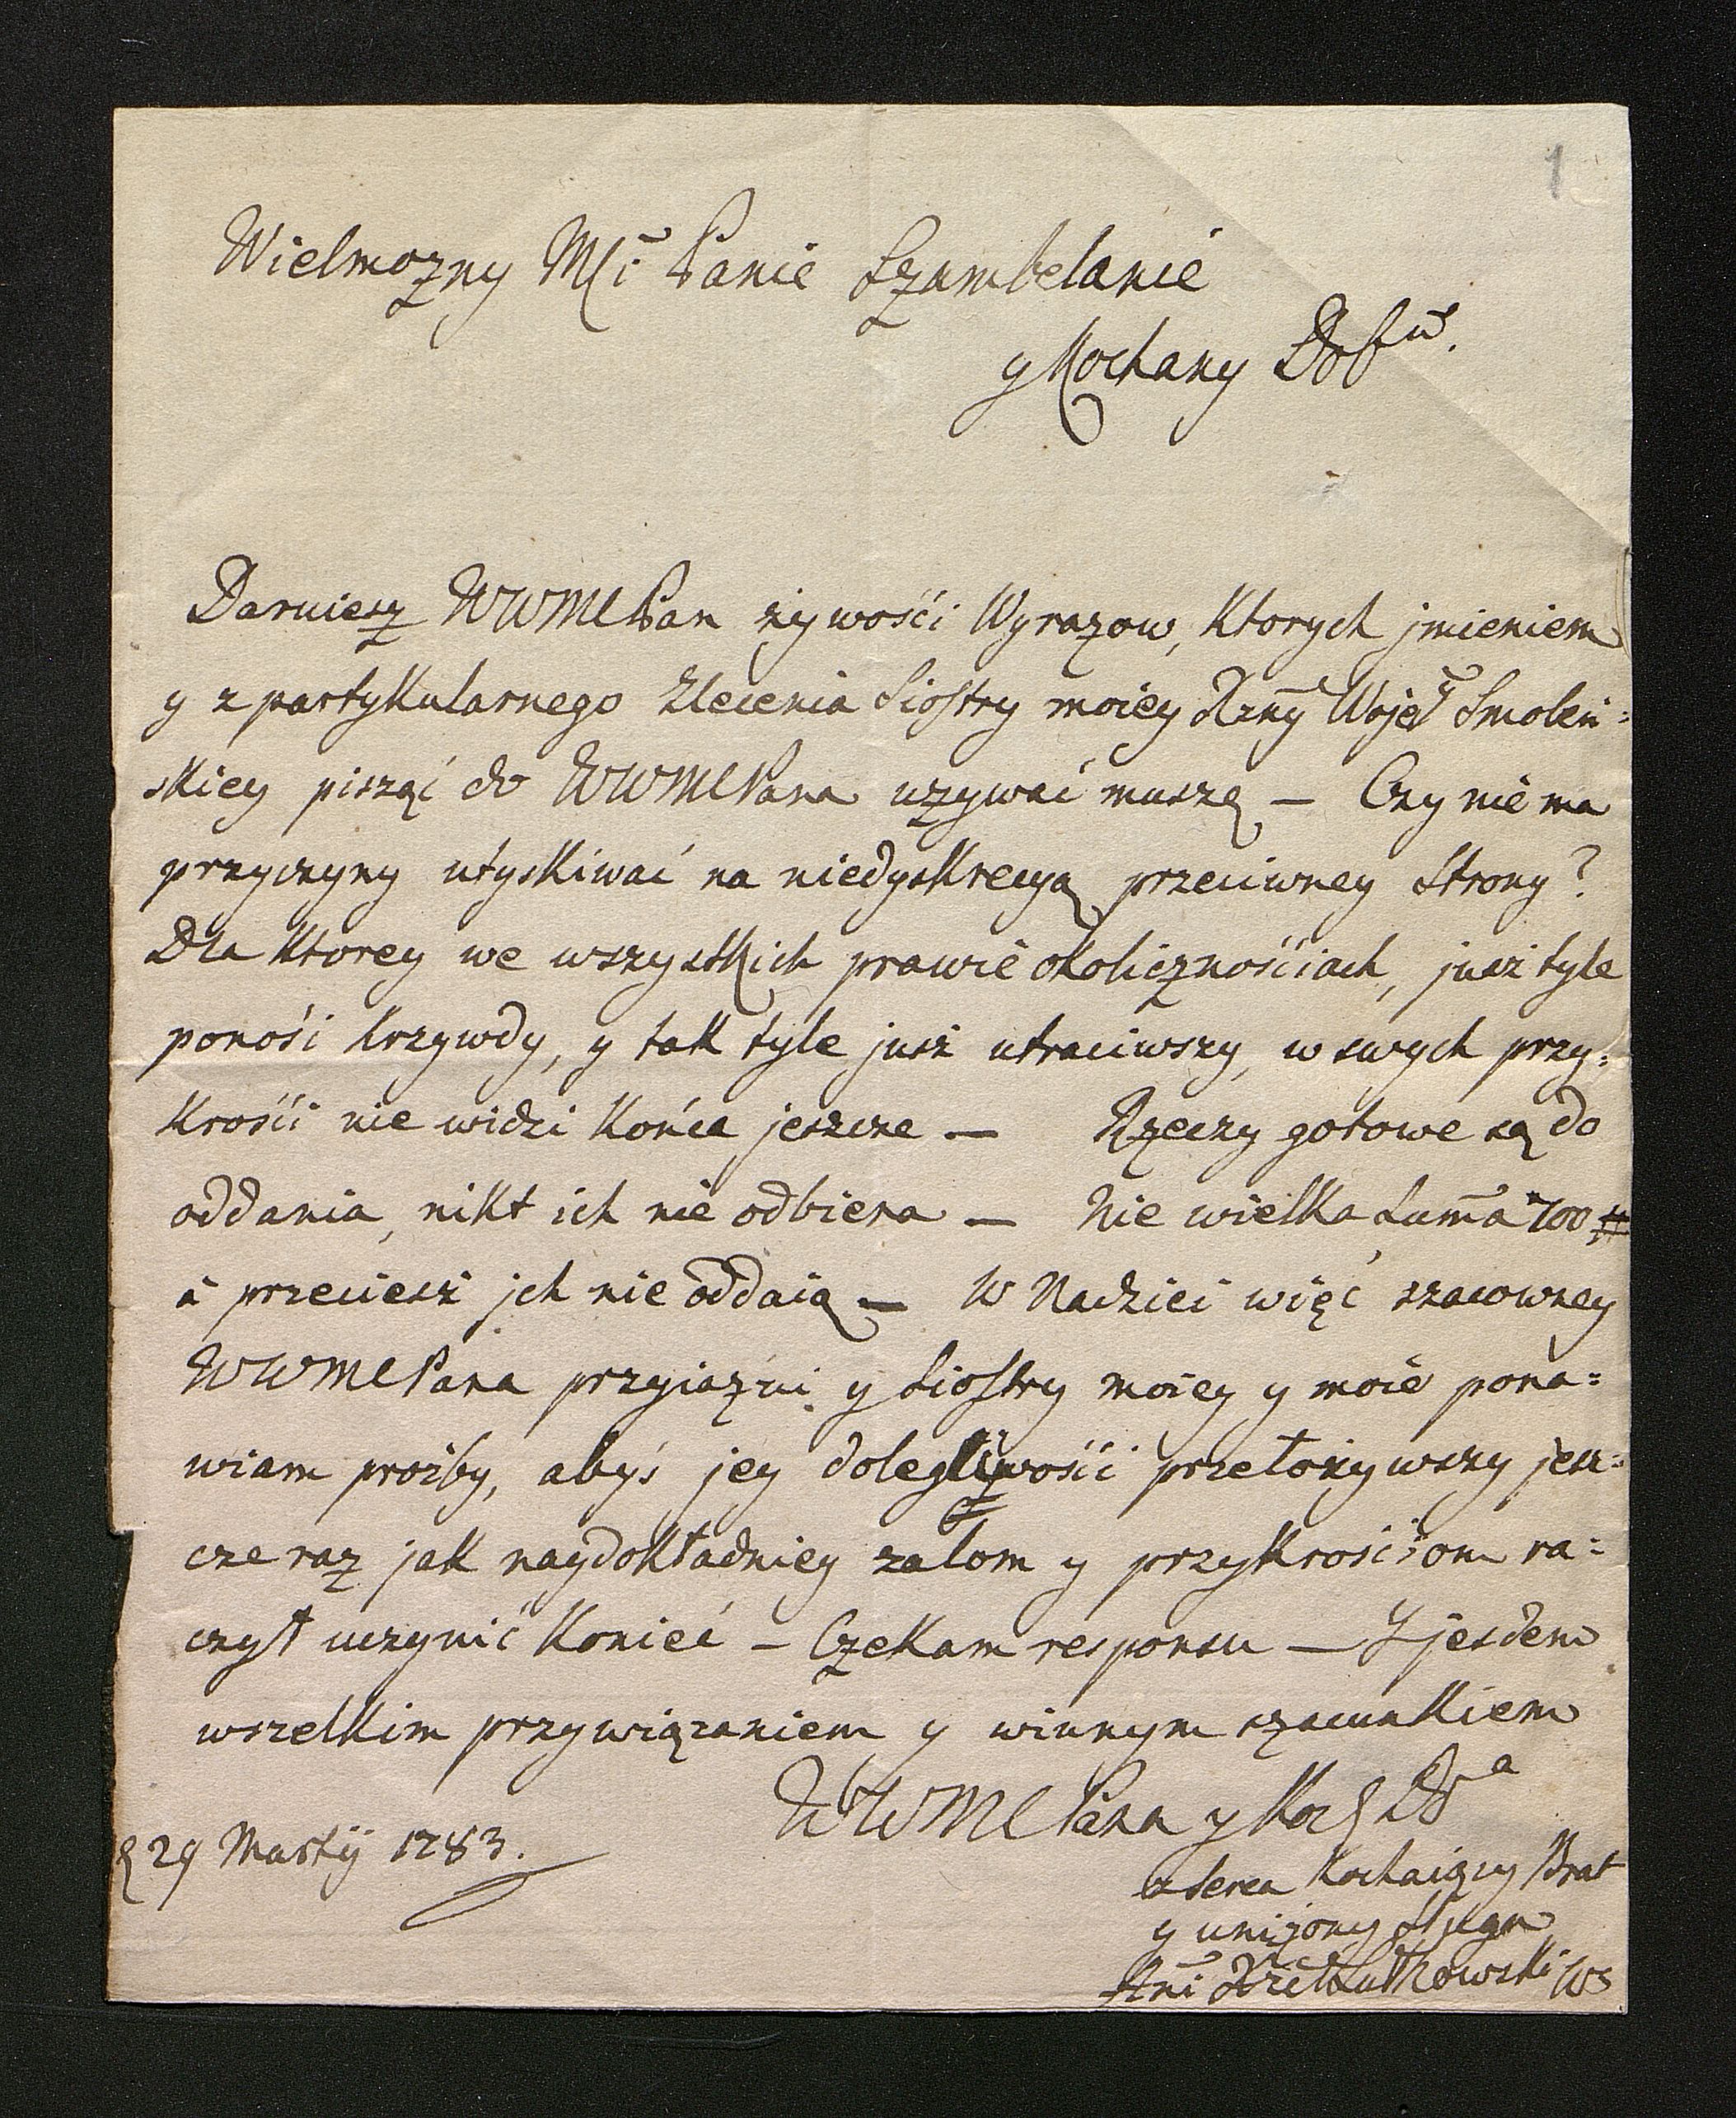 1
Wielmozny Mći Panie Szambelanie
y Kochany Dobů.
Daruiesz WWMCPan zywośći Wyrazow, Ktorych jmieniem
y z partykularnego Zlecenia Siostry moiey Smoleń=
skiey pisząć do WWMCPana uzywać muszę — Czy nie ma
przyczyny utyskiwać na niedyskrecyą przeciwney Strony?
Dla Ktorey we wszystkich prawie okolicznościach, jusz tyle
ponośi Krzywdy, y tak tyle jusz utraciwszy, w swych przy=
krośći nie widzi Końca jeszcze — Rzeczy gotowe są do
oddania, nikt ich nie odbiera — Nie wielka Suma̅ 700 #
á przeciesz jch nie oddaią — W Nadziei więć szacowney
WWMCPana przyiaźni y Siostry moiey y moie pona=
wiam proźby, abyś jey dolegliwośći przełozywszy jesz=
cze raz jak naydokładniey zalom y przykrośćiom ra=
czył uczynić Konieć — Czekam responsu — Y jesdem
wszelkim przywiązaniem y winnym szacunkiem
WWMCPana y Koch Da
29 Martij 1783.
z serca Kochaiący Brat
y unizony Sługa